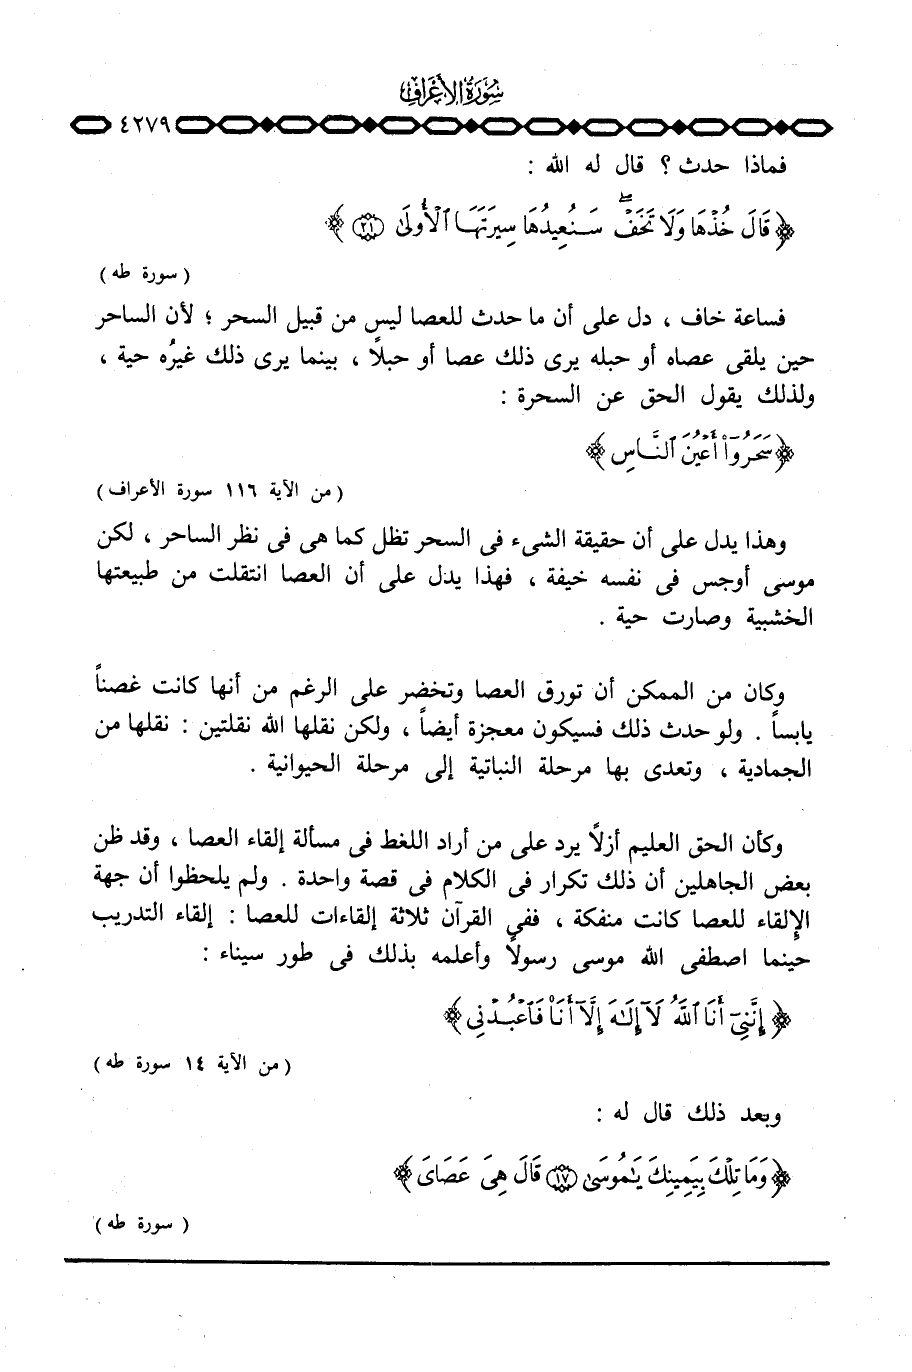 سُورَةُ الأَعْرَافِ
٤٢٧٩
فماذا حدث ؟ قال له الله :
﴿ قَالَ خُذْهَا وَلَا تَخَفْ ۖ سَنُعِيدُهَا سِيرَتَهَا ٱلْأُولَىٰ ﴿٢١﴾ ﴾
( سورة طه )
فساعة خاف ، دل على أن ما حدث للعصا ليس من قبيل السحر ؛ لأن الساحر
حين يلقى عصاه أو حبله يرى ذلك عصا أو حبلاً ، بينما يرى ذلك غيرُه حية ،
ولذلك يقول الحق عن السحرة :
﴿ سَحَرُوٓا۟ أَعْيُنَ ٱلنَّاسِ ﴾
( من الآية ١١٦ سورة الأعراف )
وهذا يدل على أن حقيقة الشىء فى السحر تظل كما هى فى نظر الساحر ، لكن
موسى أوجس فى نفسه خيفة ، فهذا يدل على أن العصا انتقلت من طبيعتها
الخشبية وصارت حية .
وكان من الممكن أن تورق العصا وتخضر على الرغم من أنها كانت غصناً
يابساً . ولو حدث ذلك فسيكون معجزة أيضاً ، ولكن نقلها الله نقلتين : نقلها من
الجمادية ، وتعدى بها مرحلة النباتية إلى مرحلة الحيوانية .
وكأن الحق العليم أزلاً يرد على من أراد اللغط فى مسألة إلقاء العصا ، وقد ظن
بعض الجاهلين أن ذلك تكرار فى الكلام فى قصة واحدة . ولم يلحظوا أن جهة
الإِلقاء للعصا كانت منفكة ، ففى القرآن ثلاثة إلقاءات للعصا : إلقاء التدريب
حينما اصطفى الله موسى رسولاً وأعلمه بذلك فى طور سيناء :
﴿ إِنَّنِىٓ أَنَا ٱللَّهُ لَآ إِلَـٰهَ إِلَّآ أَنَا۠ فَٱعْبُدْنِى ﴾
( من الآية ١٤ سورة طه )
وبعد ذلك قال له :
﴿ وَمَا تِلْكَ بِيَمِينِكَ يَـٰمُوسَىٰ ﴿١٧﴾ قَالَ هِىَ عَصَاىَ ﴾
( سورة طه )